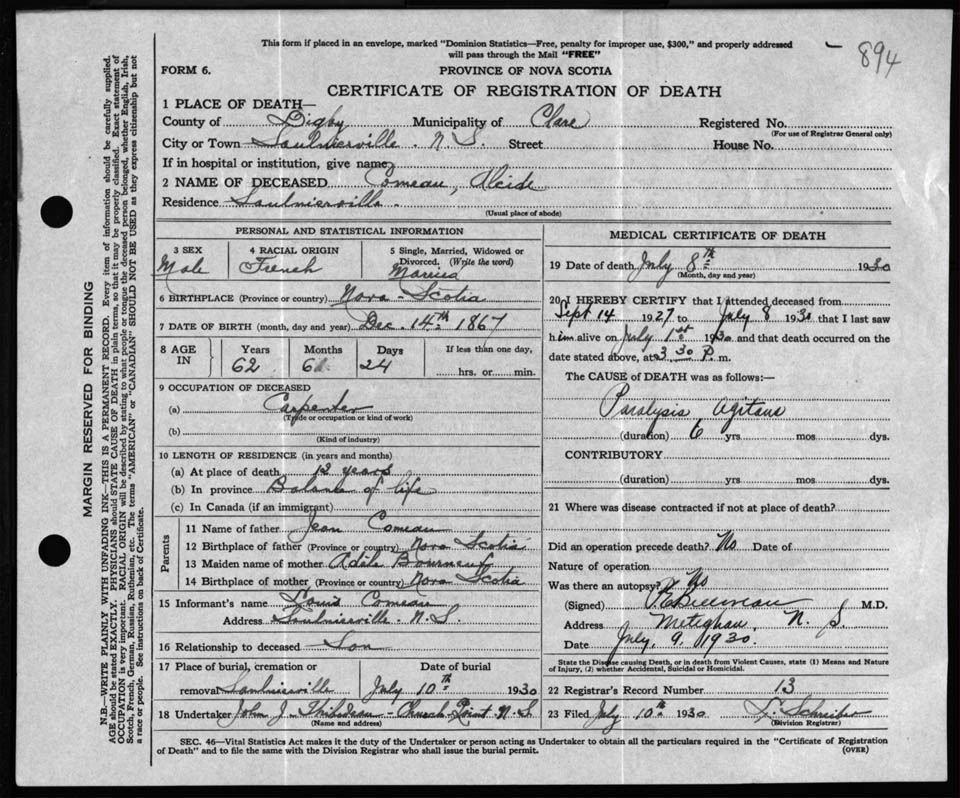 This form if placed in an envelope, marked "Dominion Statistics—Free, penalty for improper use, $300," and properly addressed
will pass through the Mail "FREE"
894
FORM 6.
PROVINCE OF NOVA SCOTIA
CERTIFICATE OF REGISTRATION OF DEATH
1 PLACE OF DEATH—
County of Digby Municipality of Clare Registered No.
(For use of Registrar General only)
City or Town Saulnierville. N.S. Street House No.
If in hospital or institution, give name
2 NAME OF DECEASED Comeau, Alcide
Residence Saulnierville
(Usual place of abode)
PERSONAL AND STATISTICAL INFORMATION
3 SEX 4 RACIAL ORIGIN 5 Single, Married, Widowed or
Divorced. (Write the word)
Male French Married
6 BIRTHPLACE (Province or country) Nova-Scotia
7 DATE OF BIRTH (month, day and year) Dec. 14th 1867
8 AGE IN Years Months Days If less than one day,
62 6 24 hrs. or min.
9 OCCUPATION OF DECEASED
(a) Carpenter
(Trade or occupation or kind of work)
(b)
(Kind of industry)
10 LENGTH OF RESIDENCE (in years and months)
(a) At place of death 12 years
(b) In province Balance of life
(c) In Canada (if an immigrant)
Parents
11 Name of father Jean Comeau
12 Birthplace of father (Province or country) Nova Scotia
13 Maiden name of mother Adele Bourneuf
14 Birthplace of mother (Province or country) Nova Scotia
15 Informant's name Louis Comeau
Address Saulnierville. N.S.
16 Relationship to deceased Son
17 Place of burial, cremation or Date of burial
removal Saulnierville July 10th 1930
18 Undertaker John J. Thibodeau - Church Point N.S.
(Name and address)
MEDICAL CERTIFICATE OF DEATH
19 Date of death July 8th 1930
(Month, day and year)
20 I HEREBY CERTIFY that I attended deceased from
Sept 14 1927 to July 8 1930 that I last saw
him alive on July 1st 1930 and that death occurred on the
date stated above, at 3.30 P. m.
The CAUSE of DEATH was as follows:—
Paralysis Agitans
(duration) 6 yrs. mos dys.
CONTRIBUTORY
(duration) yrs. mos. dys.
21 Where was disease contracted if not at place of death?
Did an operation precede death? No Date of
Nature of operation
Was there an autopsy? No
(Signed) M.D.
Address Meteghan, N.S.
Date July, 9, 1930.
State the Disease causing Death, or in death from Violent Causes, state (1) Means and Nature
of Injury, (2) whether Accidental, Suicidal or Homicidal.
22 Registrar's Record Number 13
23 Filed July 10th 1930 F. Schreiber
(Division Registrar)
SEC. 46—Vital Statistics Act makes it the duty of the Undertaker or person acting as Undertaker to obtain all the particulars required in the "Certificate of Registration
of Death" and to file the same with the Division Registrar who shall issue the burial permit. (OVER)
MARGIN RESERVED FOR BINDING
N.B.—WRITE PLAINLY WITH UNFADING INK—THIS IS A PERMANENT RECORD. Every item of information should be carefully supplied.
AGE should be stated EXACTLY. PHYSICIANS should STATE CAUSE OF DEATH in plain terms, so that it may be properly classified. Exact statement of
OCCUPATION is very important. RACIAL ORIGIN will be described by stating to what people or tongue the deceased person belonged, whether English, Irish,
Scotch, French, German, Russian, Ruthenian, etc. The terms "AMERICAN" or "CANADIAN" SHOULD NOT BE USED as they express citizenship but not
a race or people. See instructions on back of Certificate.